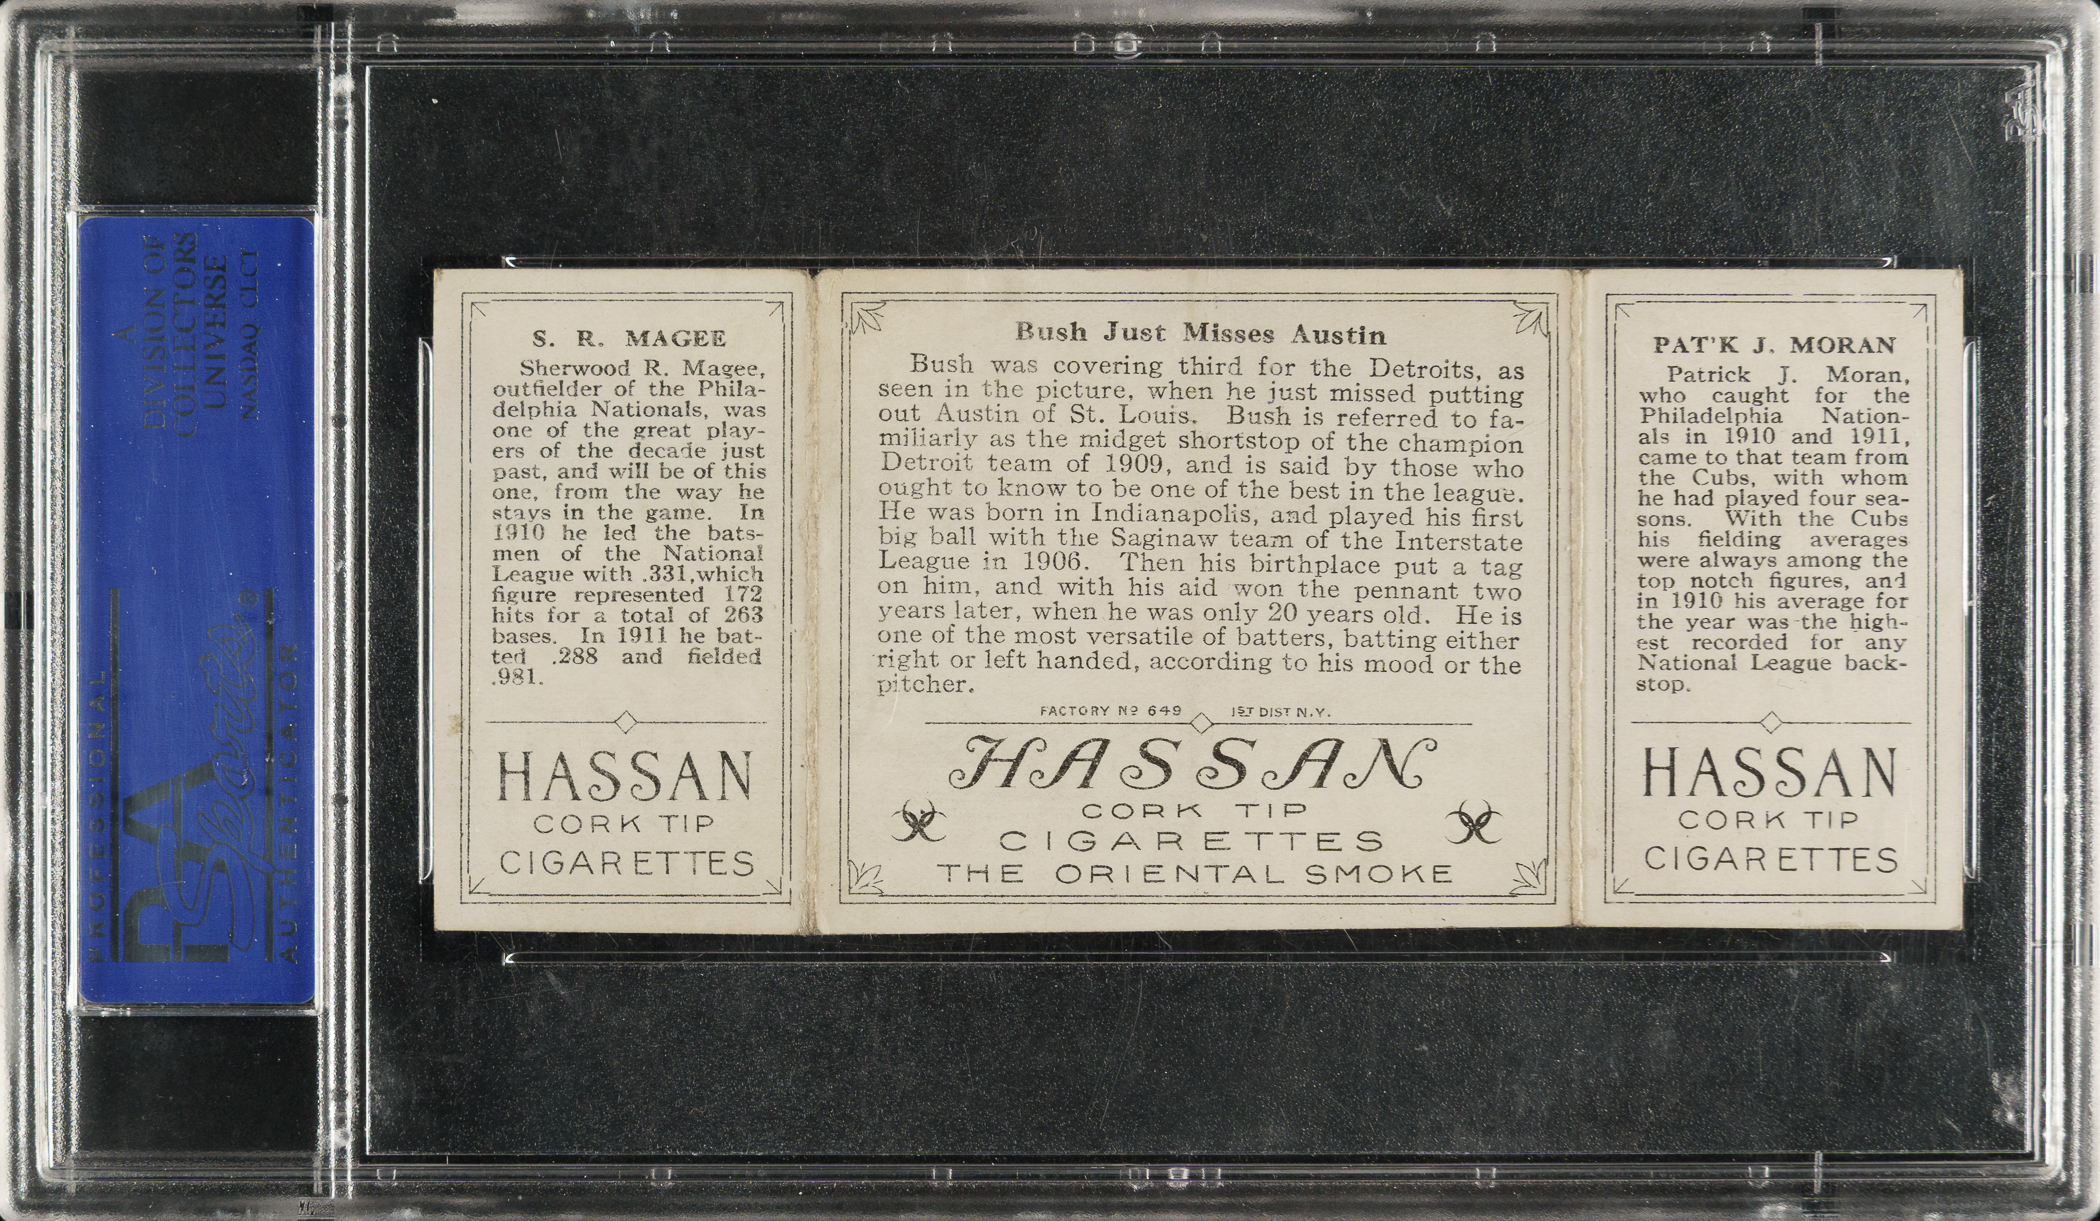 A
DIVISION OF
COLLECTORS
UNIVERSE
NASDAQ CLCT
PROFESSIONAL
PSA
Sports
®
AUTHENTICATOR
S. R. MAGEE
Sherwood R. Magee,
outfielder of the Phila-
delphia Nationals, was
one of the great play-
ers of the decade just
past, and will be of this
one, from the way he
stays in the game. In
1910 he led the bats-
men of the National
League with .331,which
figure represented 172
hits for a total of 263
bases. In 1911 he bat-
ted .288 and fielded
.981.
HASSAN
CORK TIP
CIGARETTES
Bush Just Misses Austin
Bush was covering third for the Detroits, as
seen in the picture, when he just missed putting
out Austin of St. Louis. Bush is referred to fa-
miliarly as the midget shortstop of the champion
Detroit team of 1909, and is said by those who
ought to know to be one of the best in the league.
He was born in Indianapolis, and played his first
big ball with the Saginaw team of the Interstate
League in 1906. Then his birthplace put a tag
on him, and with his aid won the pennant two
years later, when he was only 20 years old. He is
one of the most versatile of batters, batting either
right or left handed, according to his mood or the
pitcher.
FACTORY Nº 649 1ST DIST N.Y.
HASSAN
CORK TIP
CIGARETTES
THE ORIENTAL SMOKE
PAT'K J. MORAN
Patrick J. Moran,
who caught for the
Philadelphia Nation-
als in 1910 and 1911,
came to that team from
the Cubs, with whom
he had played four sea-
sons. With the Cubs
his fielding averages
were always among the
top notch figures, and
in 1910 his average for
the year was the high-
est recorded for any
National League back-
stop.
HASSAN
CORK TIP
CIGARETTES
PSA